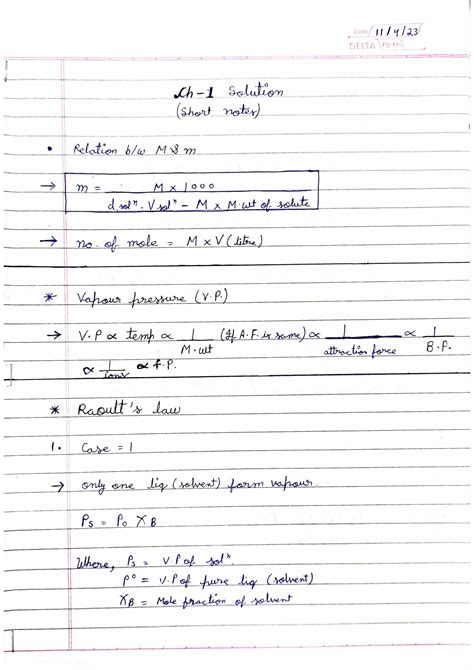 Date 11/4/23
DELTA Pg No.
Ch-1 Solution
(Short notes)
• Relation b/w M & m
→ m = M x 1000 / d.solⁿ. V solⁿ - M x M.wt of solute
→ no. of mole = M x V (litre)
* Vapour pressure (V.P.)
→ V.P ∝ temp ∝ 1/M.wt (If A.F. is same) ∝ 1/attraction force ∝ 1/B.P.
∝ 1/ions ∝ f.P.
* Raoult's law
1. Case = 1
→ only one liq (solvent) form vapour.
Ps = Po XB
Where, Ps = V.P of solⁿ.
P° = V.P of pure liq (solvent)
XB = Mole fraction of solvent